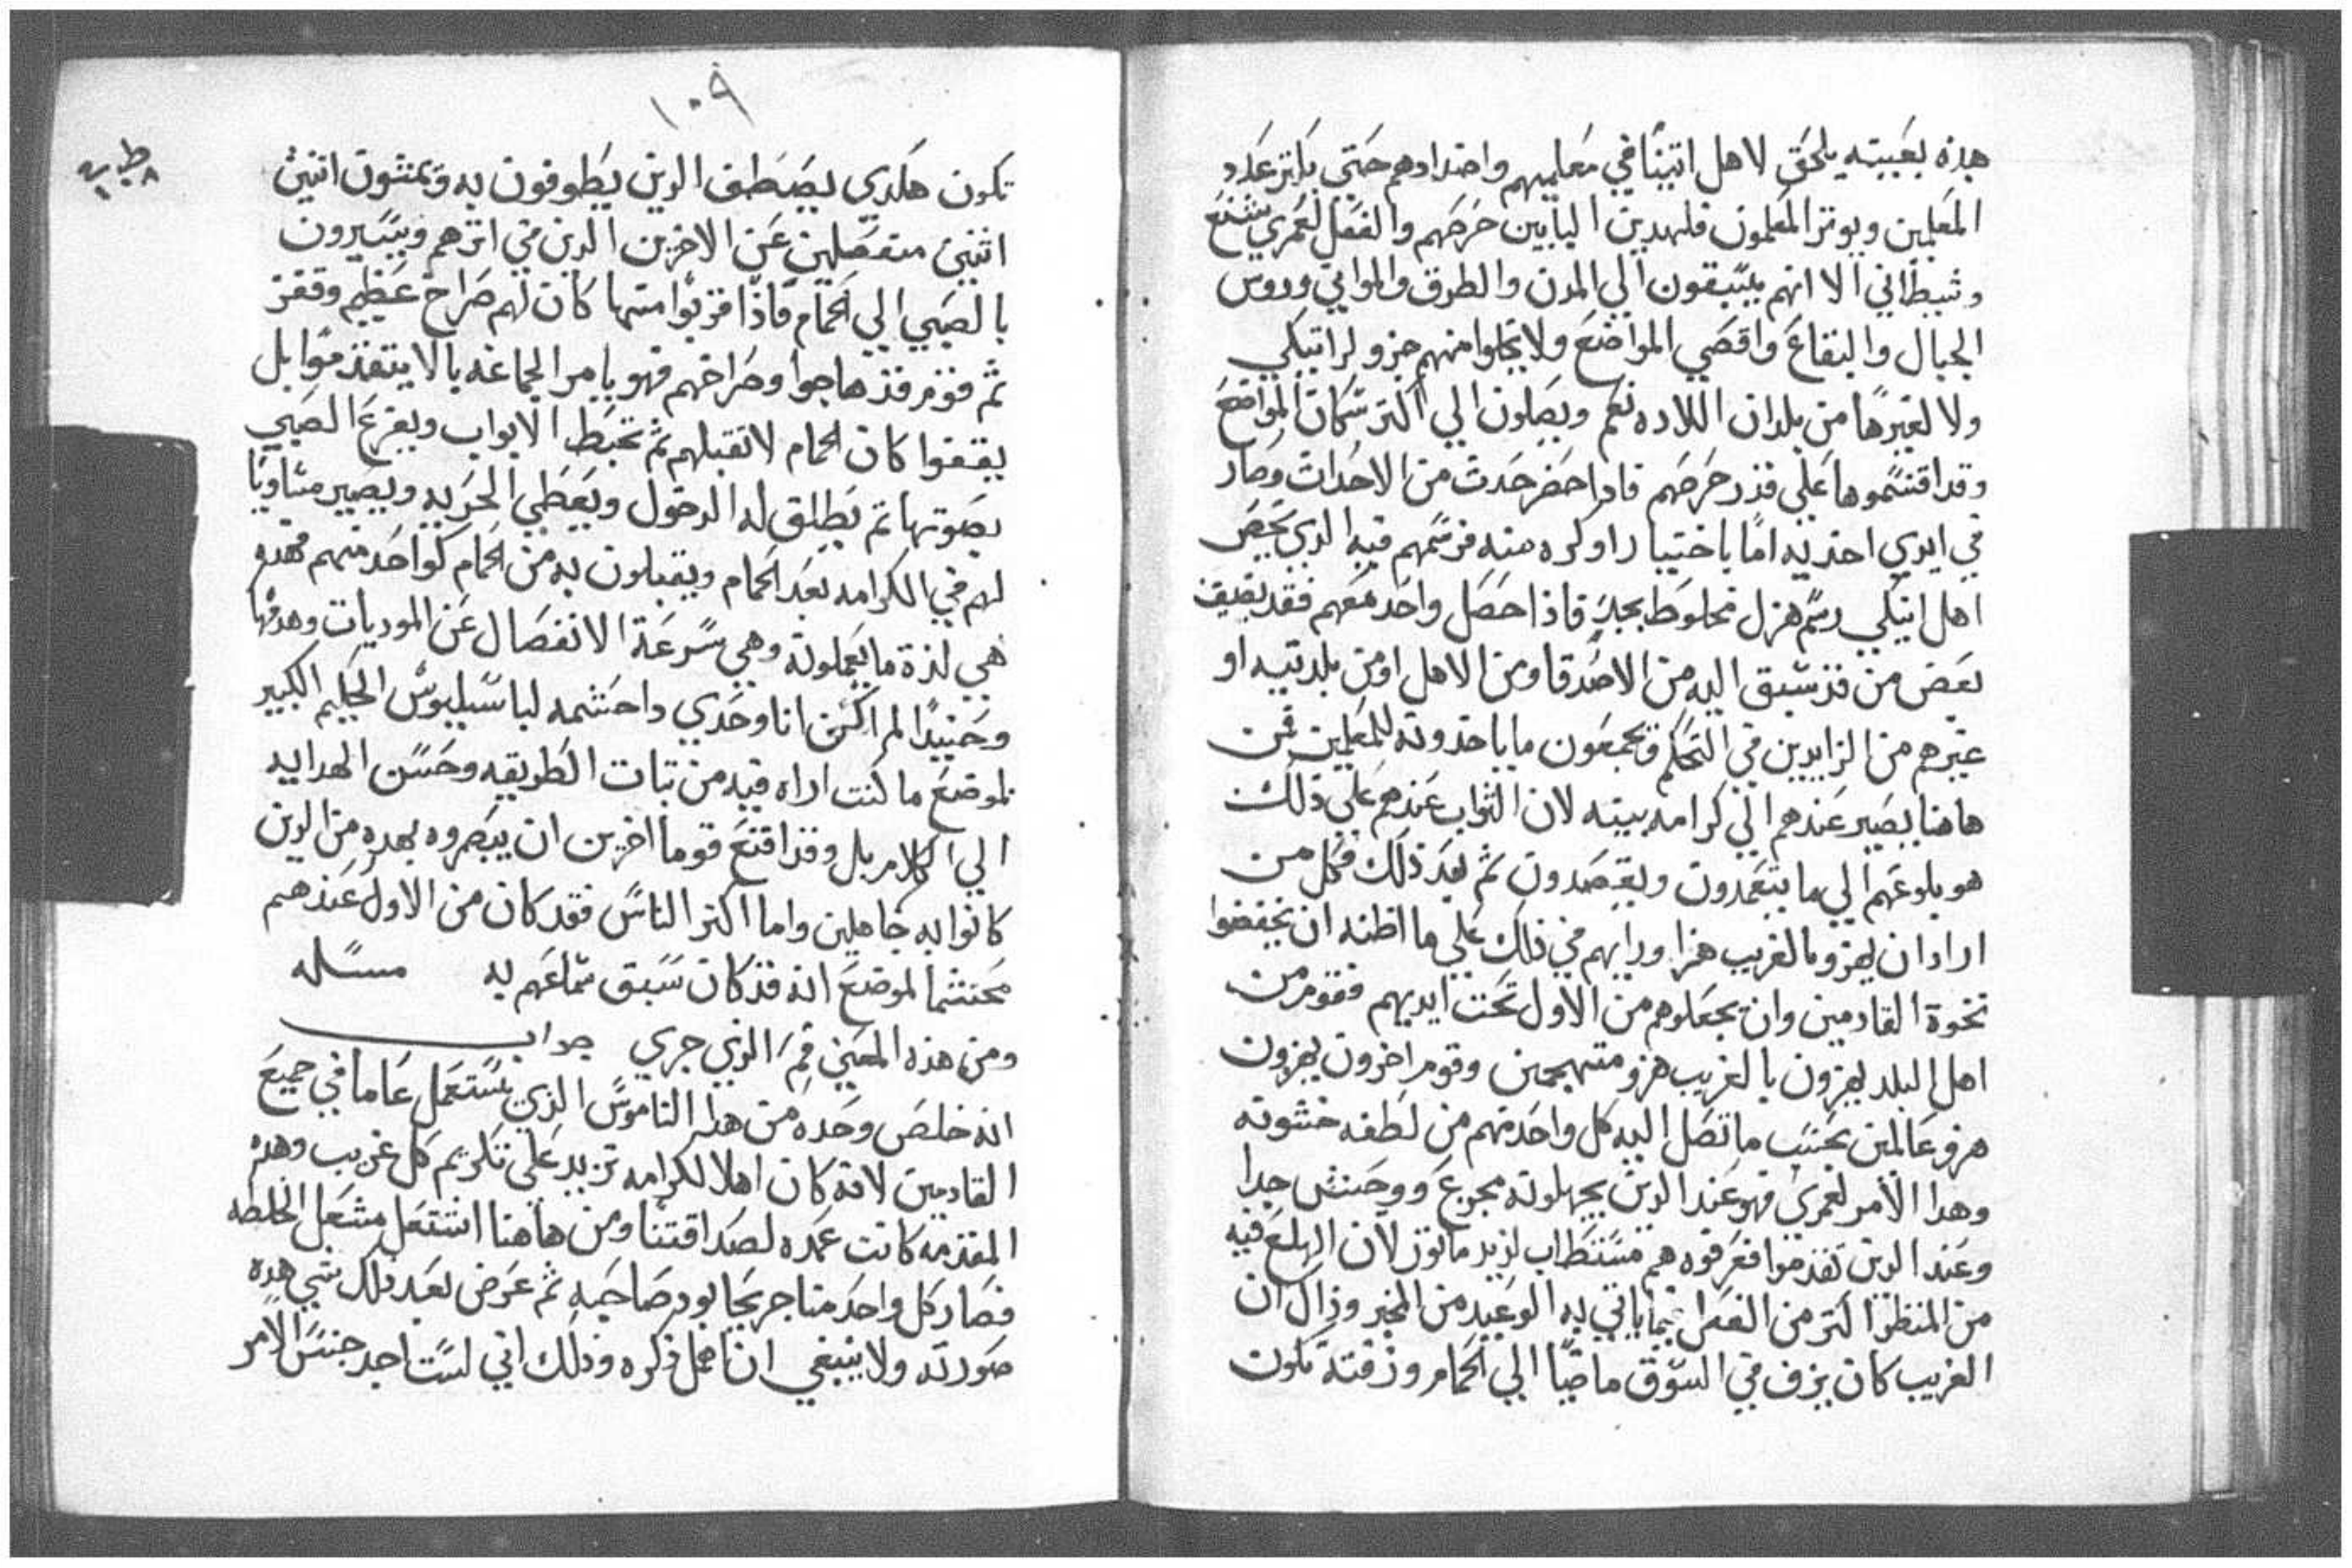 هذه بعينه يلحق لاهل اتينا في معلميهم واضدادهم حتي يكتر عدد
المعلمين ويوتر المعلمون فلهدين البابين حرصهم والفعل لعمري شنع
وشيطاني الا انهم يسبقون الي المدن والطرق والمواني وروس
الجبال والبقاع واقصي المواضع ولا يخلوا منهم جزو لراتيكي
ولا لغيرها من بلدان اللاده نعم ويصلون الي اكتر سكان المواضع
وقد اقتسموها علي قدر حرصهم فادا حضر حدت من الاحدات وصار
في ايدي اخديه اما باختيار او كره منه فرسمهم فيه الدي يخص
اهل اتيكي رسم هزل مخلوط بجد فاذا حصل واحد معهم فقد يضيف
بعض من قد سبق اليه من الاصدقا ومن الاهل او من بلدتيه او
غيرهم من الزايدين في التحكم ويجمعون ما ياخدونه للمعلمين فمن
هاهنا يصير عندهم الي كرامه بينه لان التواب عندهم علي ذلك
هو بلوغهم الي ما يتعمدون ويقصدون ثم بعد ذلك فكل من
اراد ان يهزو بالغريب هزا ورايهم في ذلك علي ما اظنه ان يخفضوا
نخوة القادمين وان يجعلوهم من الاول تحت ايديهم فقوم من
اهل البلد يهزون بالغريب هزو متهجمين وقوم اخرون يهزون
هزو عالمين بحسب ما تصل اليه كل واحد منهم من لطفه خشونه
وهدا الامر لعمري فهو عند الدين يجهلونه مجوع ووحش جدا
وعند الدين تقدموا فعرفوه هم مستطاب لزيد مانوز لان الهلع فيه
من المنظر اكتر من الفعل بما ياتي به الوعيد من المخبر وذاك ان
الغريب كان يزف في السوق ماضيا الي الحمام وزفته تكون
١٠٩
تكون هكدي يصطف الدين يطوفون به ويمشون اتنين
اتنين منفصلين عن الاخرين الدين في اترهم ويسيرون
بالصبي الي الحمام فاذا قربوا منها كان لهم صراخ عظيم وقفز
ثم قوم قد هاجوا وصراخهم فهو يامر الجماعه بالا يتقدموا بل
يقفوا كان الحمام لا تقبلهم ثم تخبط الابواب ويفزع الصبي
بصوتها ثم يطلق له الدخول ويعطي الحريه ويصير مساويا
لهم في الكرامه بعد الحمام ويقبلون به من الحمام كواحد منهم فهده
هي لذة ما يعملونه وهي سرعة الانفصال عن الموديات وهدمها
وحنيدا لم اكن انا وحدي واحتشمه لباسيليوس الحكيم الكبير
لموضع ما كنت اراه فيه من تبات الطريقه وحسن الهدايه
الي الكلام بل وقد اقنع قوما اخرين ان يبصروه بهده من الدين
كانوا به جاهلين واما اكتر الناس فقد كان من الاول عندهم
محتشما لموضع انه قد كان سبق سماعهم به مسله
ومن هذه المعني فم الدي جري جواب
انه خلص وحده من هدا الناموس الدي يستعمل عاما في جميع
القادمين لانه كان اهلا لكرامه تزيد علي تكريم كل غريب وهده
المقدمه كانت عمده لصداقتنا ومن هاهنا اشتعل مشعل الخلطه
فصار كل واحد منا جريحا بود صاحبه ثم عرض بعد ذلك شي هده
صورته ولا ينبغي ان اهمل ذكره وذلك اني لست اجد جنس الامر